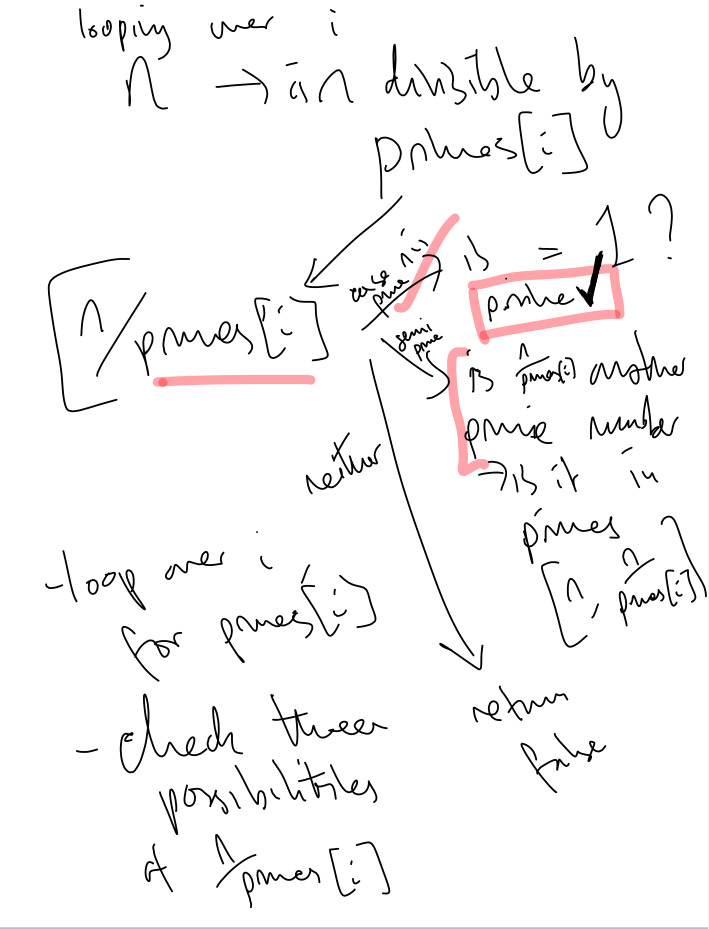 looping over i
n → is n divisible by
primes[i]
n/primes[i]
case n is
prime
is = 1 ?
prime ✓
semi
prime
is n/primes[i] another
prime number
→ is it in
primes
[n, n/primes[i]]
neither
return
false
- loop over i
for primes[i]
- check three
possibilities
of n/primes[i]